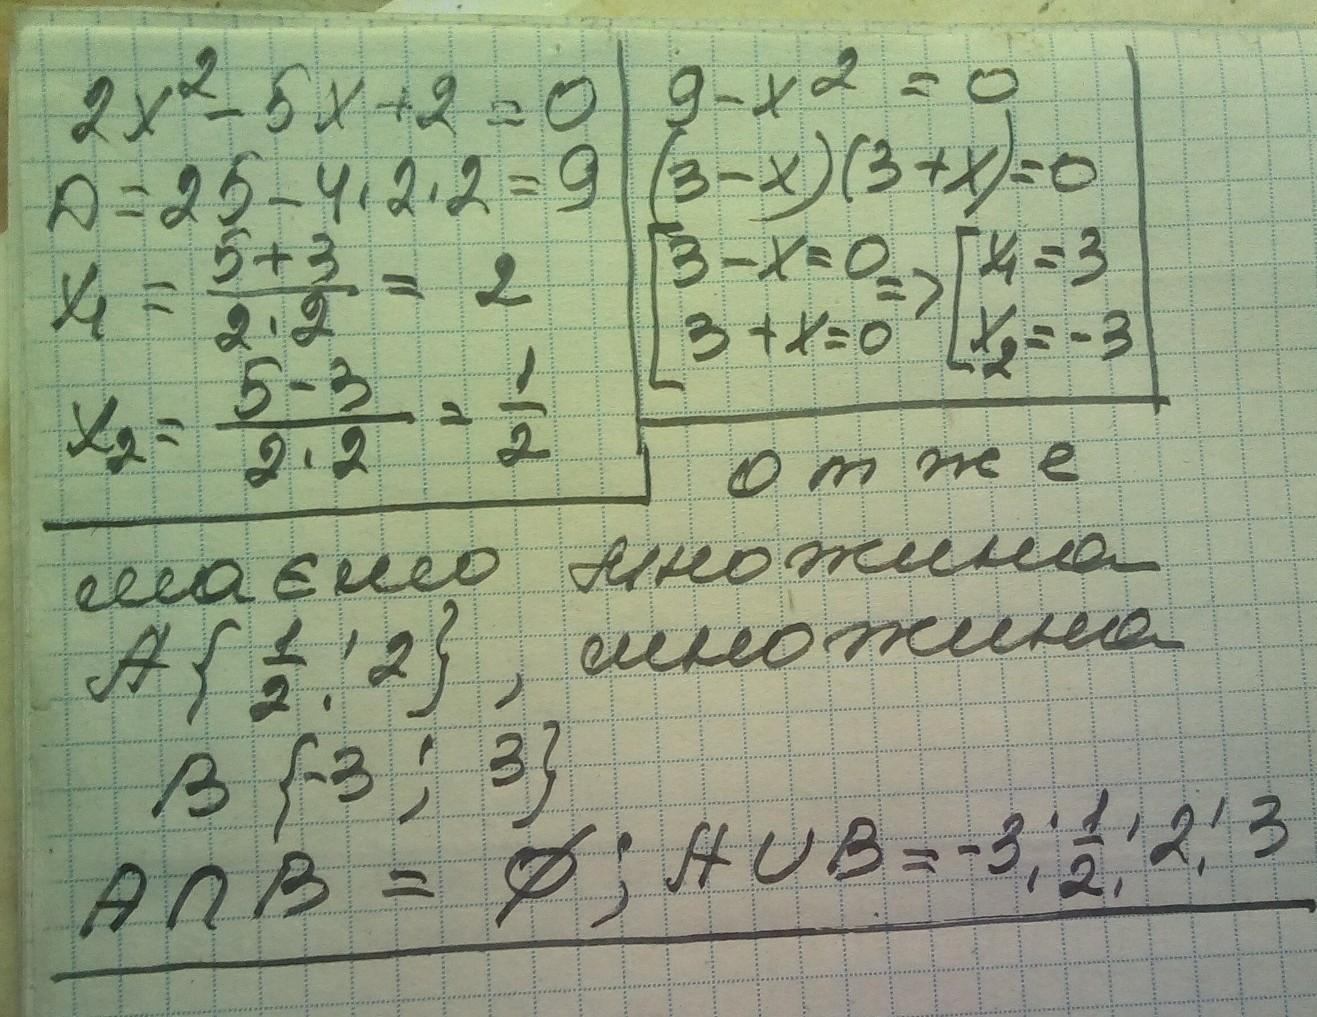 2x² - 5x + 2 = 0
D = 25 - 4·2·2 = 9
x₁ = (5+3)/(2·2) = 2
x₂ = (5-3)/(2·2) = 1/2
9 - x² = 0
(3 - x)(3 + x) = 0
[3 - x = 0 => [x₁ = 3
3 + x = 0 x₂ = -3
отже
маємо множина
A{1/2; 2}, множина
B {-3; 3}
A∩B = ∅; A∪B = -3; 1/2; 2; 3